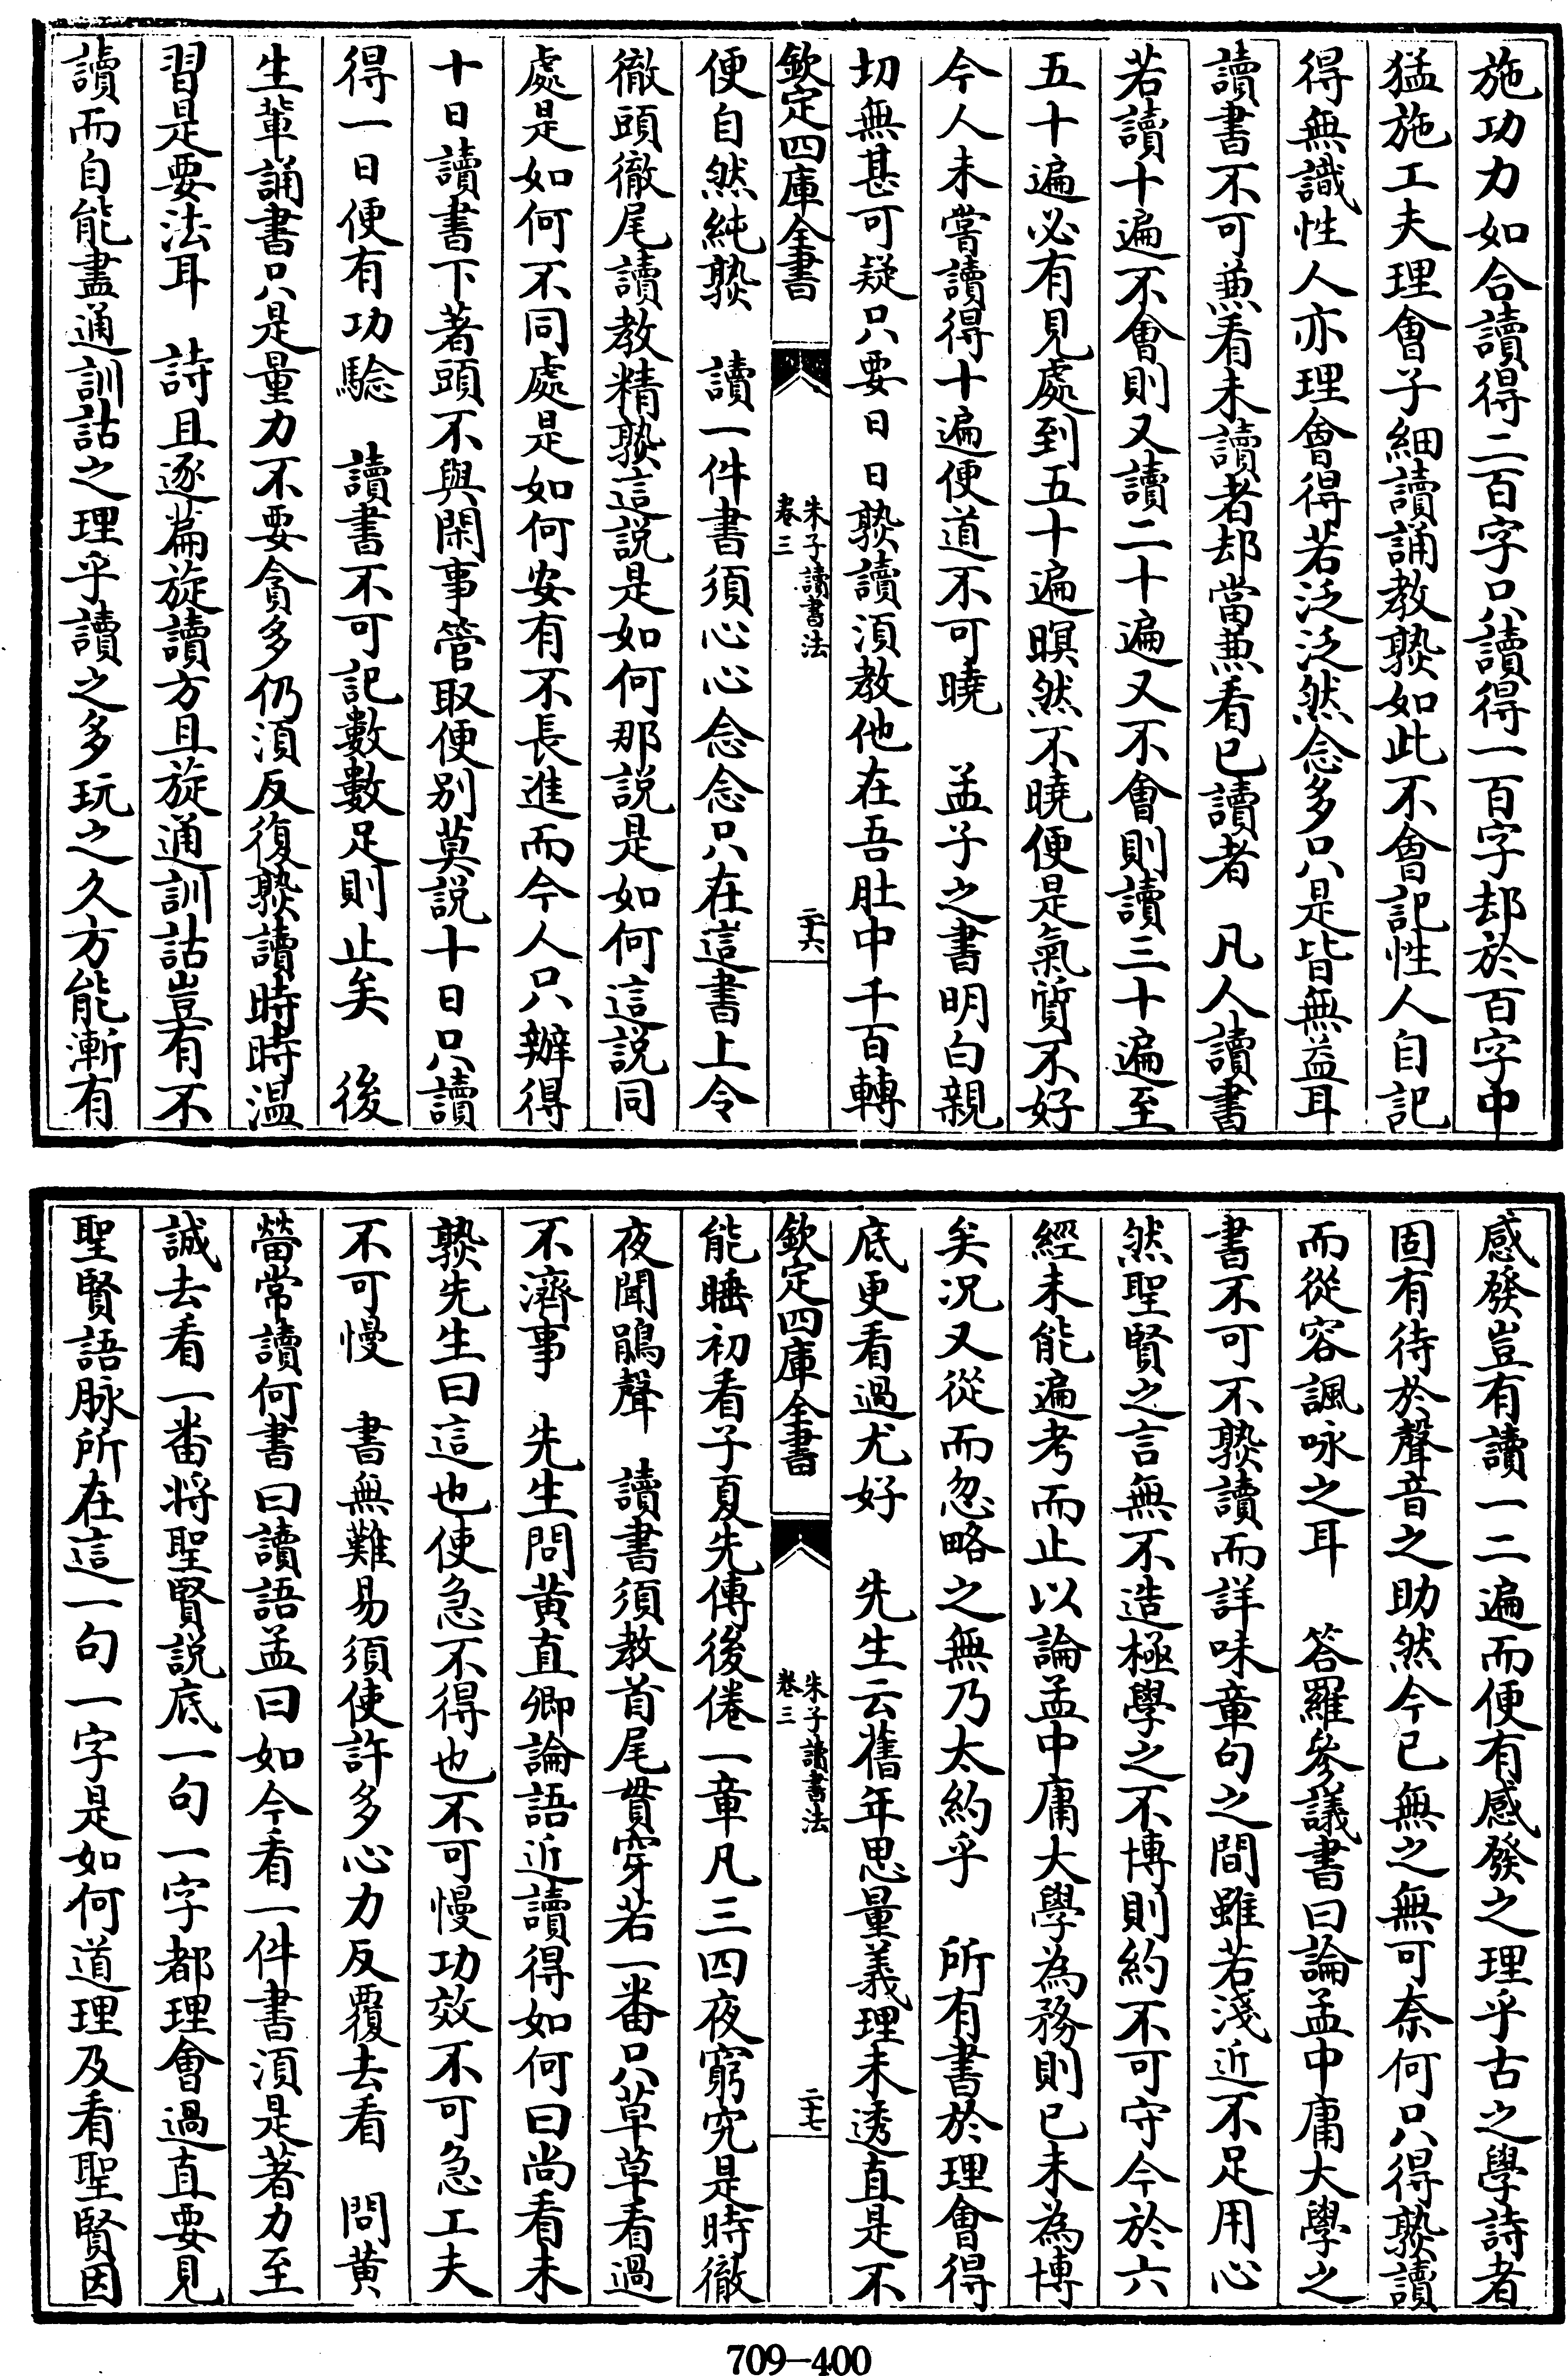 施功力如合讀得二百字只讀得一百字却於百字中
猛施工夫理會子細讀誦教熟如此不會記性人自記
得無識性人亦理會得若泛泛然念多只是皆無益耳
讀書不可兼看未讀者却當兼看已讀者　凡人讀書
若讀十遍不會則又讀二十遍又不會則讀三十遍至
五十遍必有見處到五十遍暝然不曉便是氣質不好
今人未嘗讀得十遍便道不可曉　孟子之書明白親
切無甚可疑只要日日熟讀須教他在吾肚中千百轉
欽定四庫全書　朱子讀書法　卷三　二十六
便自然純熟　讀一件書須心心念念只在這書上令
徹頭徹尾讀教精熟這說是如何那說是如何這說同
處是如何不同處是如何安有不長進而今人只辦得
十日讀書下著頭不與閑事管取便别莫說十日只讀
得一日便有功驗　讀書不可記數數足則止矣　後
生輩誦書只是量力不要貪多仍須反復熟讀時時温
習是要法耳　詩且逐篇旋讀方且旋通訓詁豈有不
讀而自能盡通訓詁之理乎讀之多玩之久方能漸有
感發豈有讀一二遍而便有感發之理乎古之學詩者
固有待於聲音之助然今已無之無可奈何只得熟讀
而從容諷咏之耳　答羅參議書曰論孟中庸大學之
書不可不熟讀而詳味章句之間雖若淺近不足用心
然聖賢之言無不造極學之不博則約不可守今於六
經未能遍考而止以論孟中庸大學為務則已未為博
矣况又從而忽略之無乃太約乎　所有書於理會得
底更看過尤好　先生云舊年思量義理未透直是不
欽定四庫全書　朱子讀書法　卷三　二十七
能睡初看子夏先傳後倦一章凡三四夜窮究是時徹
夜聞鵑聲　讀書須教首尾貫穿若一番只草草看過
不濟事　先生問黃直卿論語近讀得如何曰尚看未
熟先生曰這也使急不得也不可慢功效不可急工夫
不可慢　書無難易須使許多心力反覆去看　問黃
䓨常讀何書曰讀語孟曰如今看一件書須是著力至
誠去看一番將聖賢説底一句一字都理會過直要見
聖賢語脉所在這一句一字是如何道理及看聖賢因
709-400